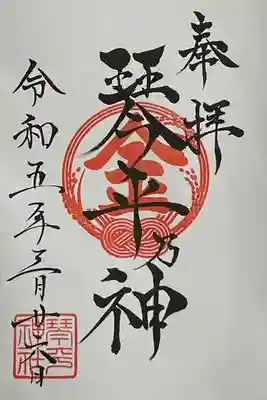 奉拝
琴平乃神
金
令和五年三月廿六日
琴平神社